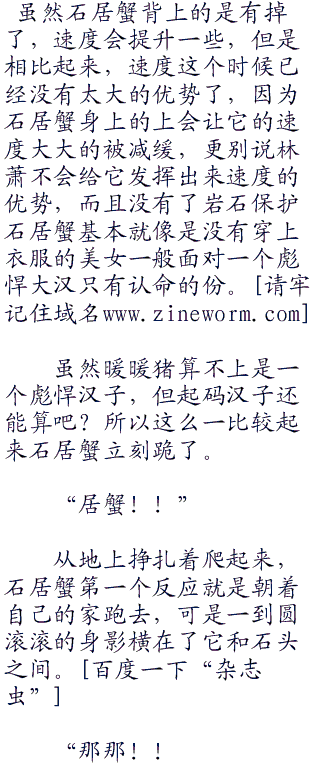 虽然石居蟹背上的是有掉
了，速度会提升一些，但是
相比起来，速度这个时候已
经没有太大的优势了，因为
石居蟹身上的上会让它的速
度大大的被减缓，更别说林
萧不会给它发挥出来速度的
优势，而且没有了岩石保护
石居蟹基本就像是没有穿上
衣服的美女一般面对一个彪
悍大汉只有认命的份。[请牢
记住域名www.zineworm.com]
虽然暖暖猪算不上是一
个彪悍汉子，但起码汉子还
能算吧？所以这么一比较起
来石居蟹立刻跪了。
“居蟹！！”
从地上挣扎着爬起来，
石居蟹第一个反应就是朝着
自己的家跑去，可是一到圆
滚滚的身影横在了它和石头
之间。[百度一下“杂志
虫”]
“那那！！